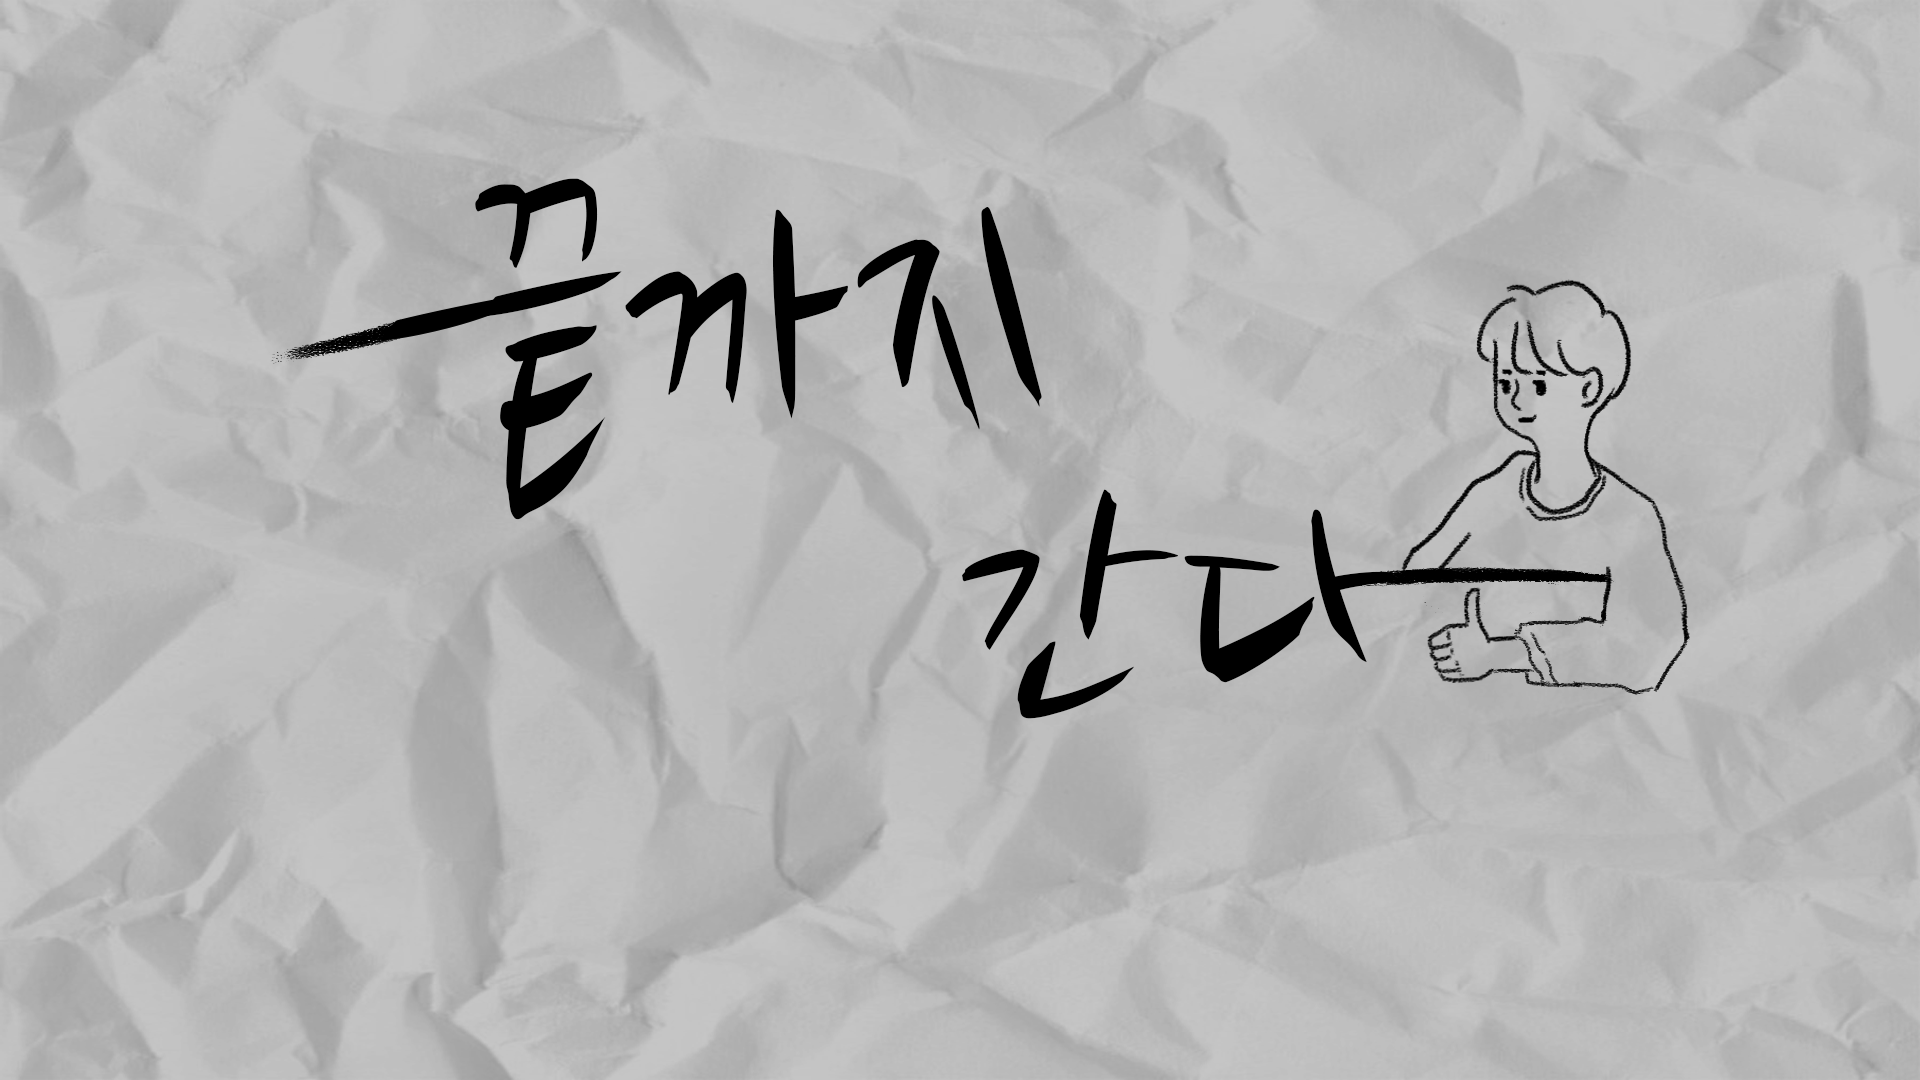 끝까지
간다